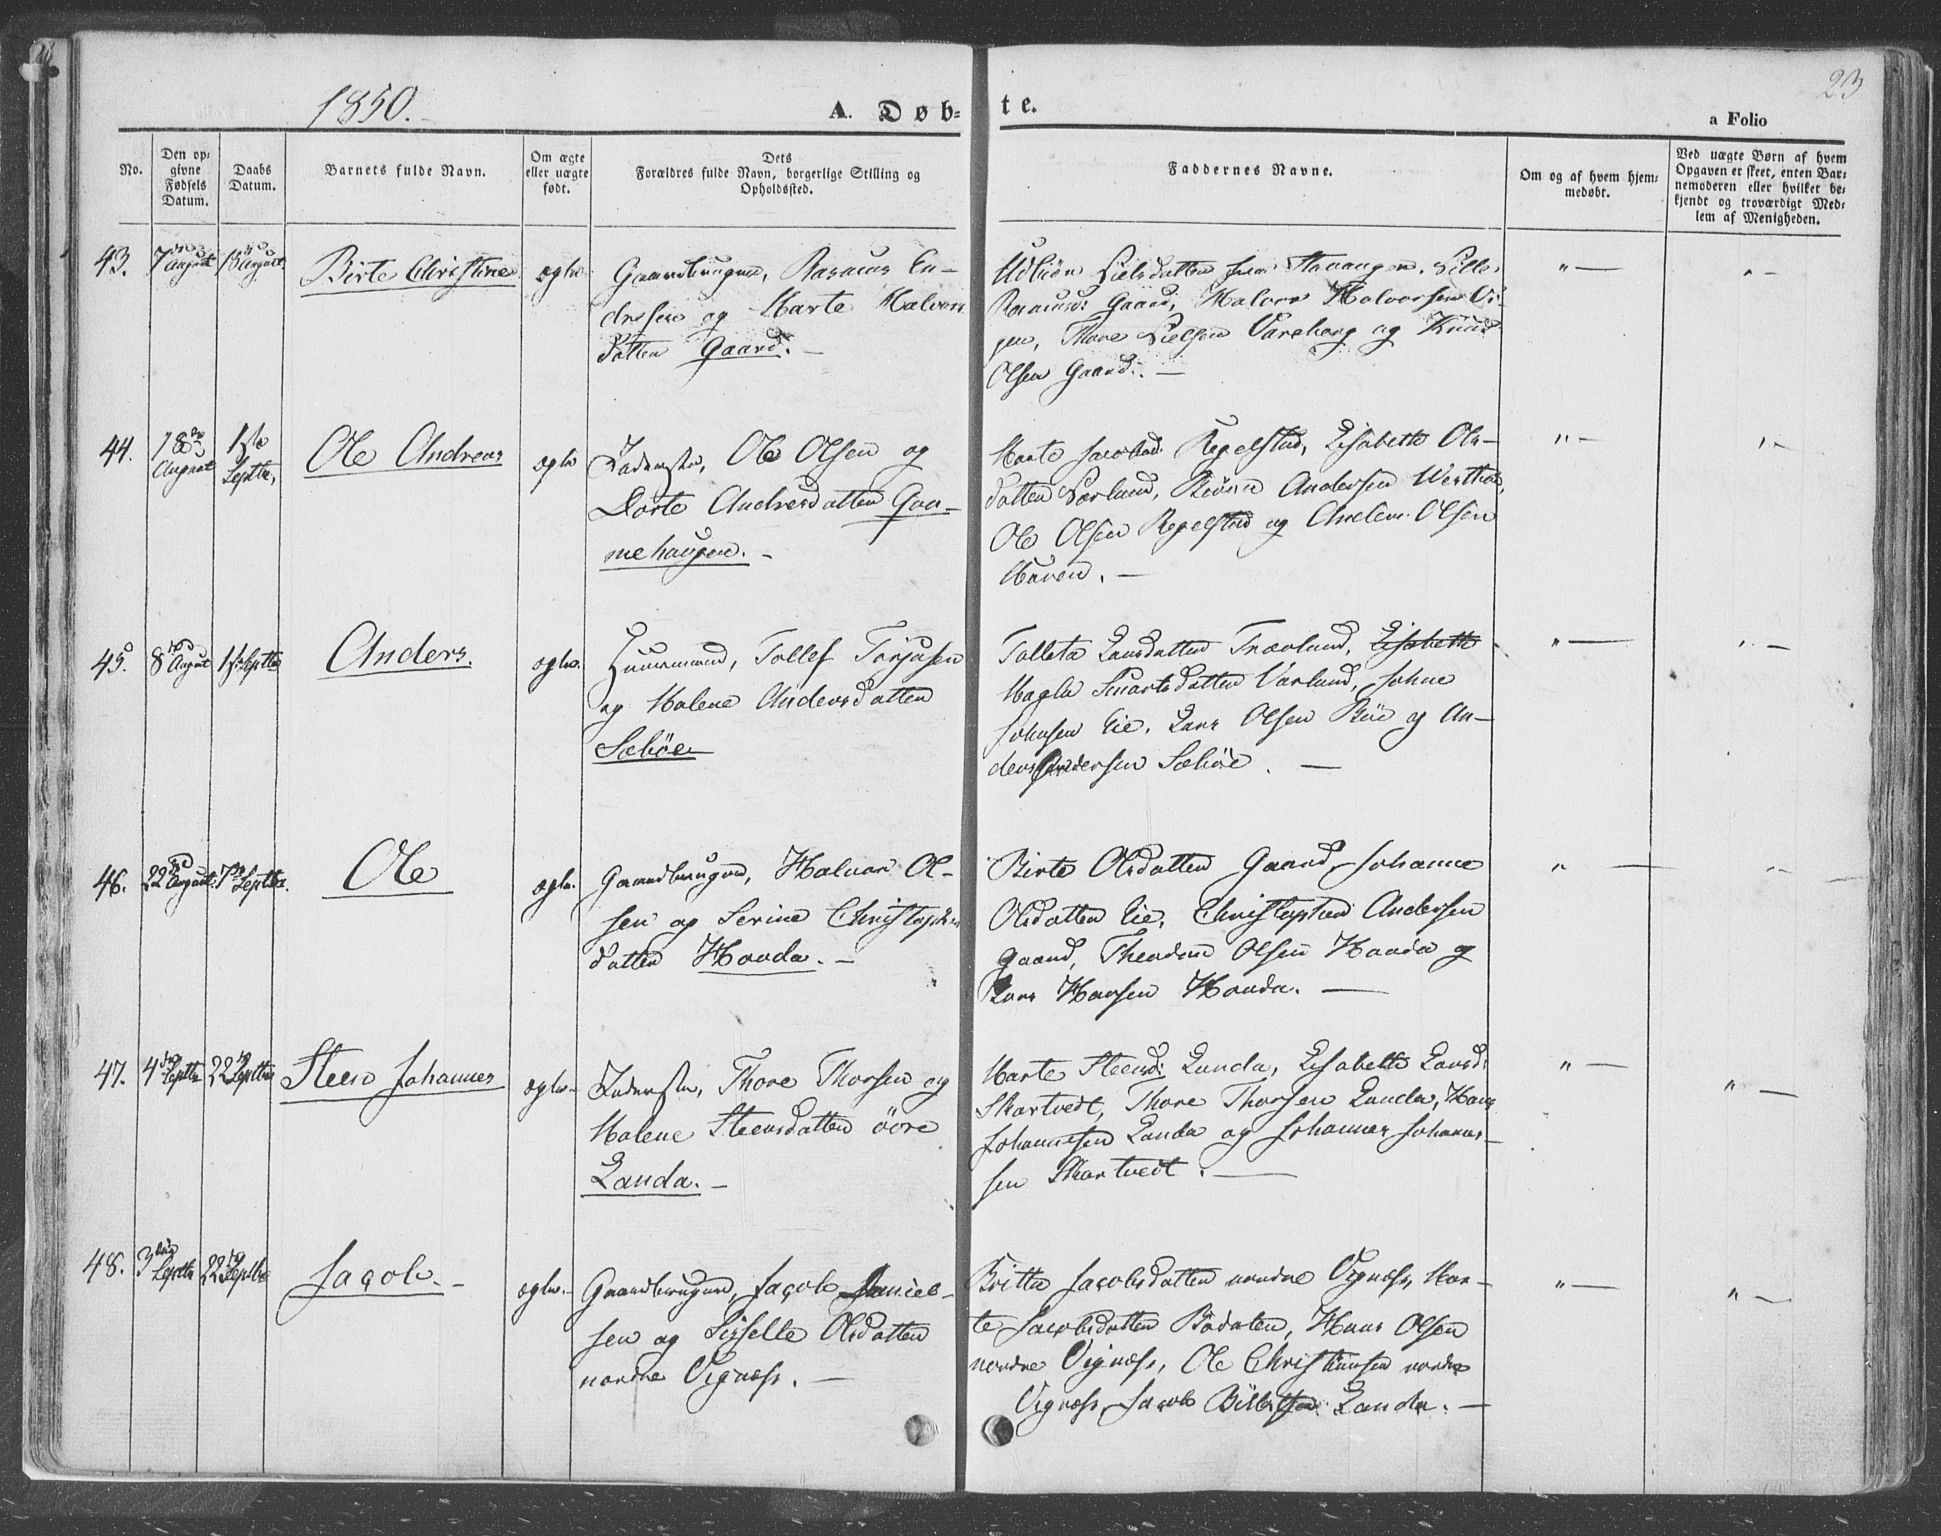 23
1850.
A. Døbte.
a Folio
No.
Den opgivne Fødsels Datum.
Daabs Datum.
Barnets fulde Navn.
Om ægte eller uægte født.
Dets Forældres fulde Navn, borgerlige Stilling og Opholdssted.
Faddernes Navne.
Om og af hvem hjemmedøbt.
Ved uægte Børn af hvem Opgaven er skeet, enten Barnemoderen eller hvilket bekjendt og troværdigt Medlem af Menigheden.
43.
7de August
18 August
Birte Christine
ægte
Gaardbruger, Rasmus En-
dresen og Marte Halvors
datter Gaard. —
Nielsdatter fra Stavanger,
Rasmusd: Gaard, Halvor Halvorsen Vi-
gen, Thore Nielsen Vareberg og Knud
Olsen Gaard. —
" —
" —
44.
18de August
1ste Septbr.
Ole Andreas
ægte
Inderste, Ole Olsen og
Dorte Andersdatter Gaa-
mehaugen. —
Marte Jacobsd. Regelstad, Lisabeth Ols-
datter Nærland, Andersen
Ole Olsen Regelstad og Olsen
Hauen. —
" —
" —
45.
8de August
1ste Septbr
Anders.
ægte.
Huusmand, Tollef Torjusen
og Malene Andersdatter
Sæbøe
Talleta Larsdatter Lisabeth
Magla Varland, Johne
Johnsen Eie, Lars Olsen Bøe og An-
ders Andersen Sæbøe. —
" —
" —
46.
22de August.
7de Septbr.
Ole
ægte.
Gaardbruger, Halvor Ol-
sen og Serine Christophers
datter Haada. —
Birte Olsdatter Gaard, Johanne
Olsdatter Eie, Christophen Andersen
Gaard, Theodor Olsen Haada og
Lars Hansen Haada. —
" —
" —
47.
4de Septbr
22de Septbr
Steen Johannes
ægte.
Inderste, Thore Thorsen og
Malene Steensdatter øvre
Landa. —
Marte Steensd: Landa, Lisabeth Larsd:
Skartvedt, Thore Thorsen Landa, Hans
Johannesen Landa og Johannes Johannes-
sen Skartvedt. —
" —
" —
48.
3die Septbr
22de Septbr
Jacob. —
ægte. —
Gaardbruger, Jacob Daniel-
sen og Sisselle Olsdatter
nordre Vignæss. —
Britta Jacobsdatter nordre Vignæss, Mar-
te Jacobsdatter Hans Olsen
nordre Vignæss, Ole Christiansen nordre
Vignæss, Jacob Landa. —
" —
" —